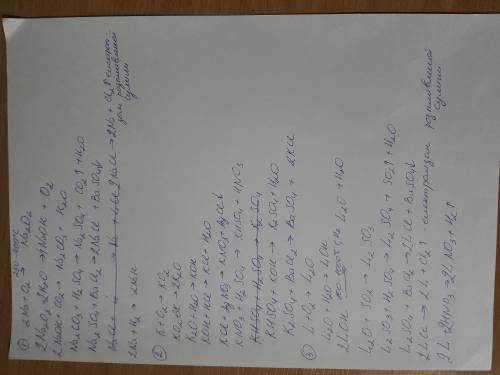 ① 2Na + O₂ → Na₂O₂
2Na₂O₂ + 2H₂O → 4NaOH + O₂
2NaOH + CO₂ → Na₂CO₃ + H₂O
Na₂CO₃ + H₂SO₄ → Na₂SO₄ + CO₂↑ + H₂O
Na₂SO₄ + BaCl₂ → 2NaCl + BaSO₄↓
2NaCl → 2Na + Cl₂↑
2Na + H₂ → 2NaH
② K + O₂ → KO₂
KO₂ + 3K → 2K₂O
K₂O + H₂O → KOH
KOH + HCl → KCl + H₂O
KCl + AgNO₃ → KNO₃ + AgCl↓
KNO₃ + H₂SO₄ → KHSO₄ + HNO₃
KHSO₄ + KOH → K₂SO₄ + H₂O
K₂SO₄ + BaCl₂ → BaSO₄ + 2KCl
③ Li + O₂ → Li₂O
Li₂O + H₂O → LiOH
2LiOH Li₂O + H₂O
Li₂O + SO₂ → Li₂SO₃
Li₂SO₃ + H₂SO₄ → Li₂SO₄ + SO₂↑ + H₂O
Li₂SO₄ + BaCl₂ → 2LiCl + BaSO₄↓
2LiCl → 2Li + Cl₂↑
2Li + 2HNO₃ → 2LiNO₃ + H₂↑